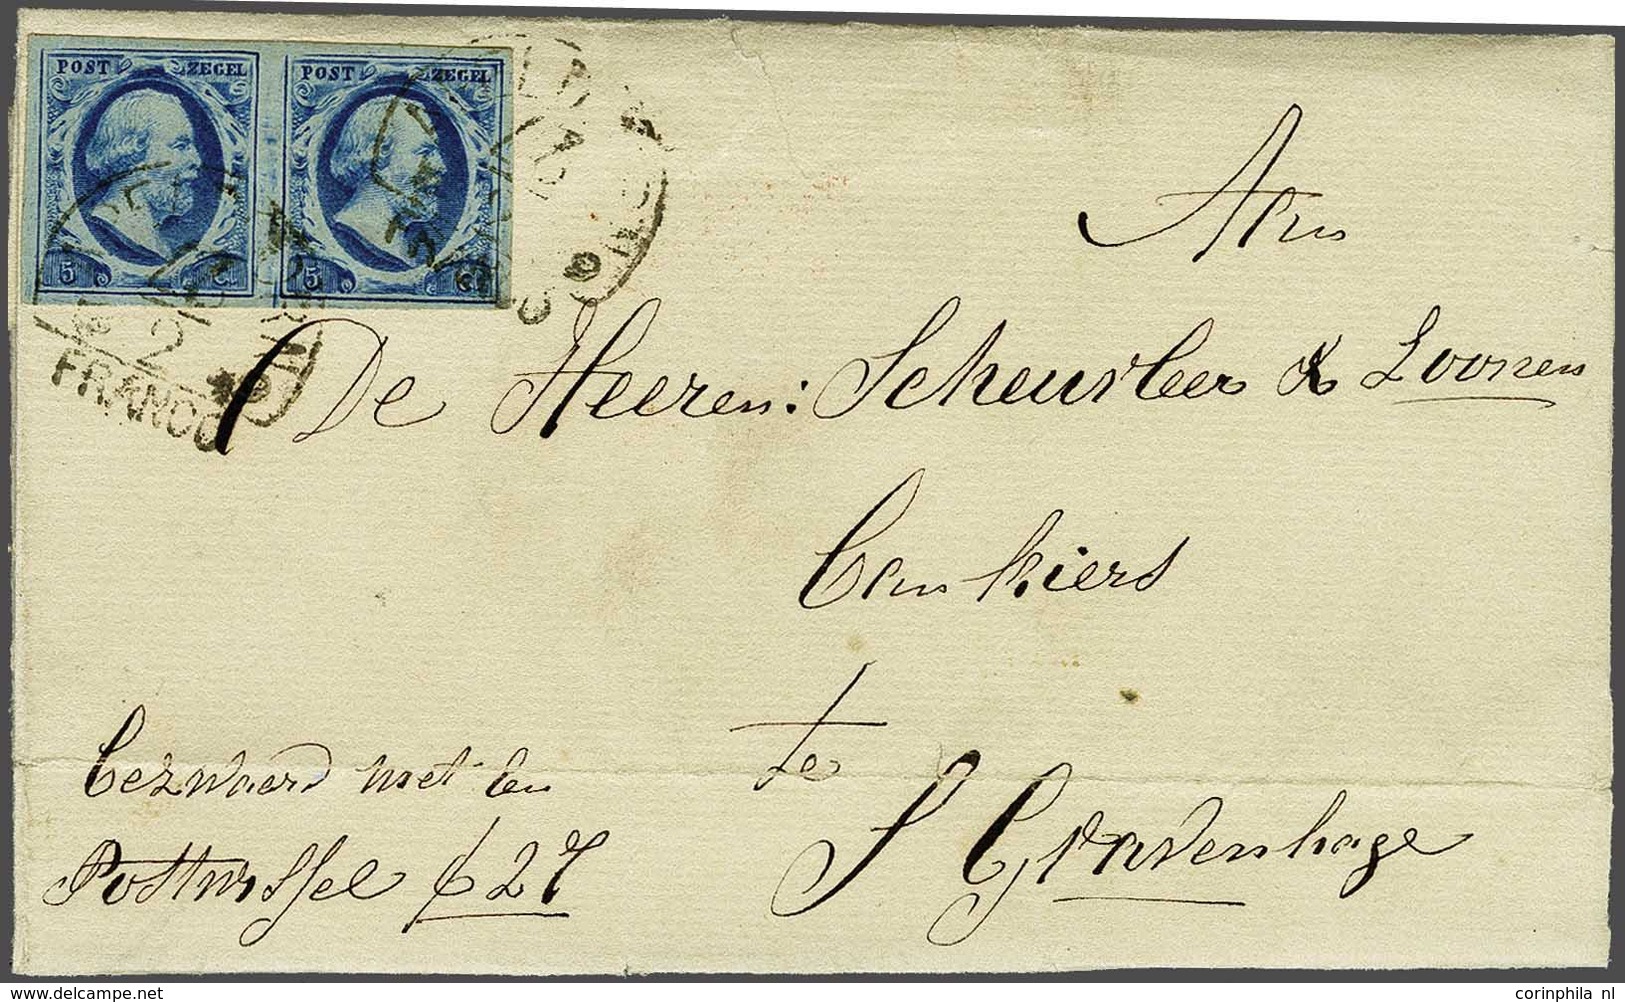 POST ZEGEL POST ZEGEL
5 C. 5 C.
FRANCO
Aan
De Heeren: Scheurleer & Zoonen
Bankiers
te
S Gravenhage
bezwaard met een
Postwissel
delcampe.net
corinphila nl